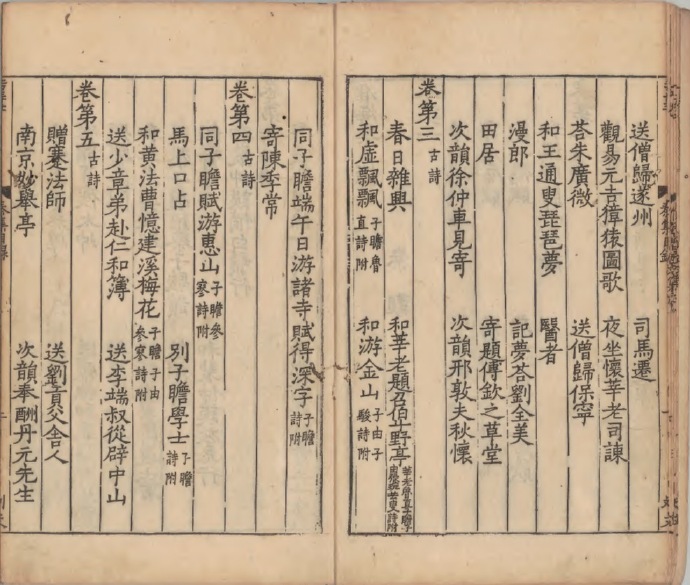 送僧歸遂州 司馬遷
觀易元吉獐猿圖歌 夜坐懷莘老司諫
荅朱廣微 送僧歸保寧
和王通叟琵琶夢 醫者
漫郎 記夢荅劉全美
田居 寄題傅欽之草堂
次韻徐仲車見寄 次韻邢敦夫秋懷
卷第三 古詩
春日雜興 和莘老題召伯斗野亭
和虛飄飄 子瞻魯直詩附 和游金山 子由子駿詩附
同子瞻端午日游諸寺賦得深字 子瞻詩附
寄陳季常
卷第四 古詩
同子瞻賦游惠山 子瞻參寥詩附
馬上口占 別子瞻學士 子瞻詩附
和黃法曹憶建溪梅花 子瞻子由參寥詩附
送少章弟赴仁和簿 送李端叔從辟中山
卷第五 古詩
贈蹇法師 送劉貢父舍人
南京妙峯亭 次韻奉酬丹元先生